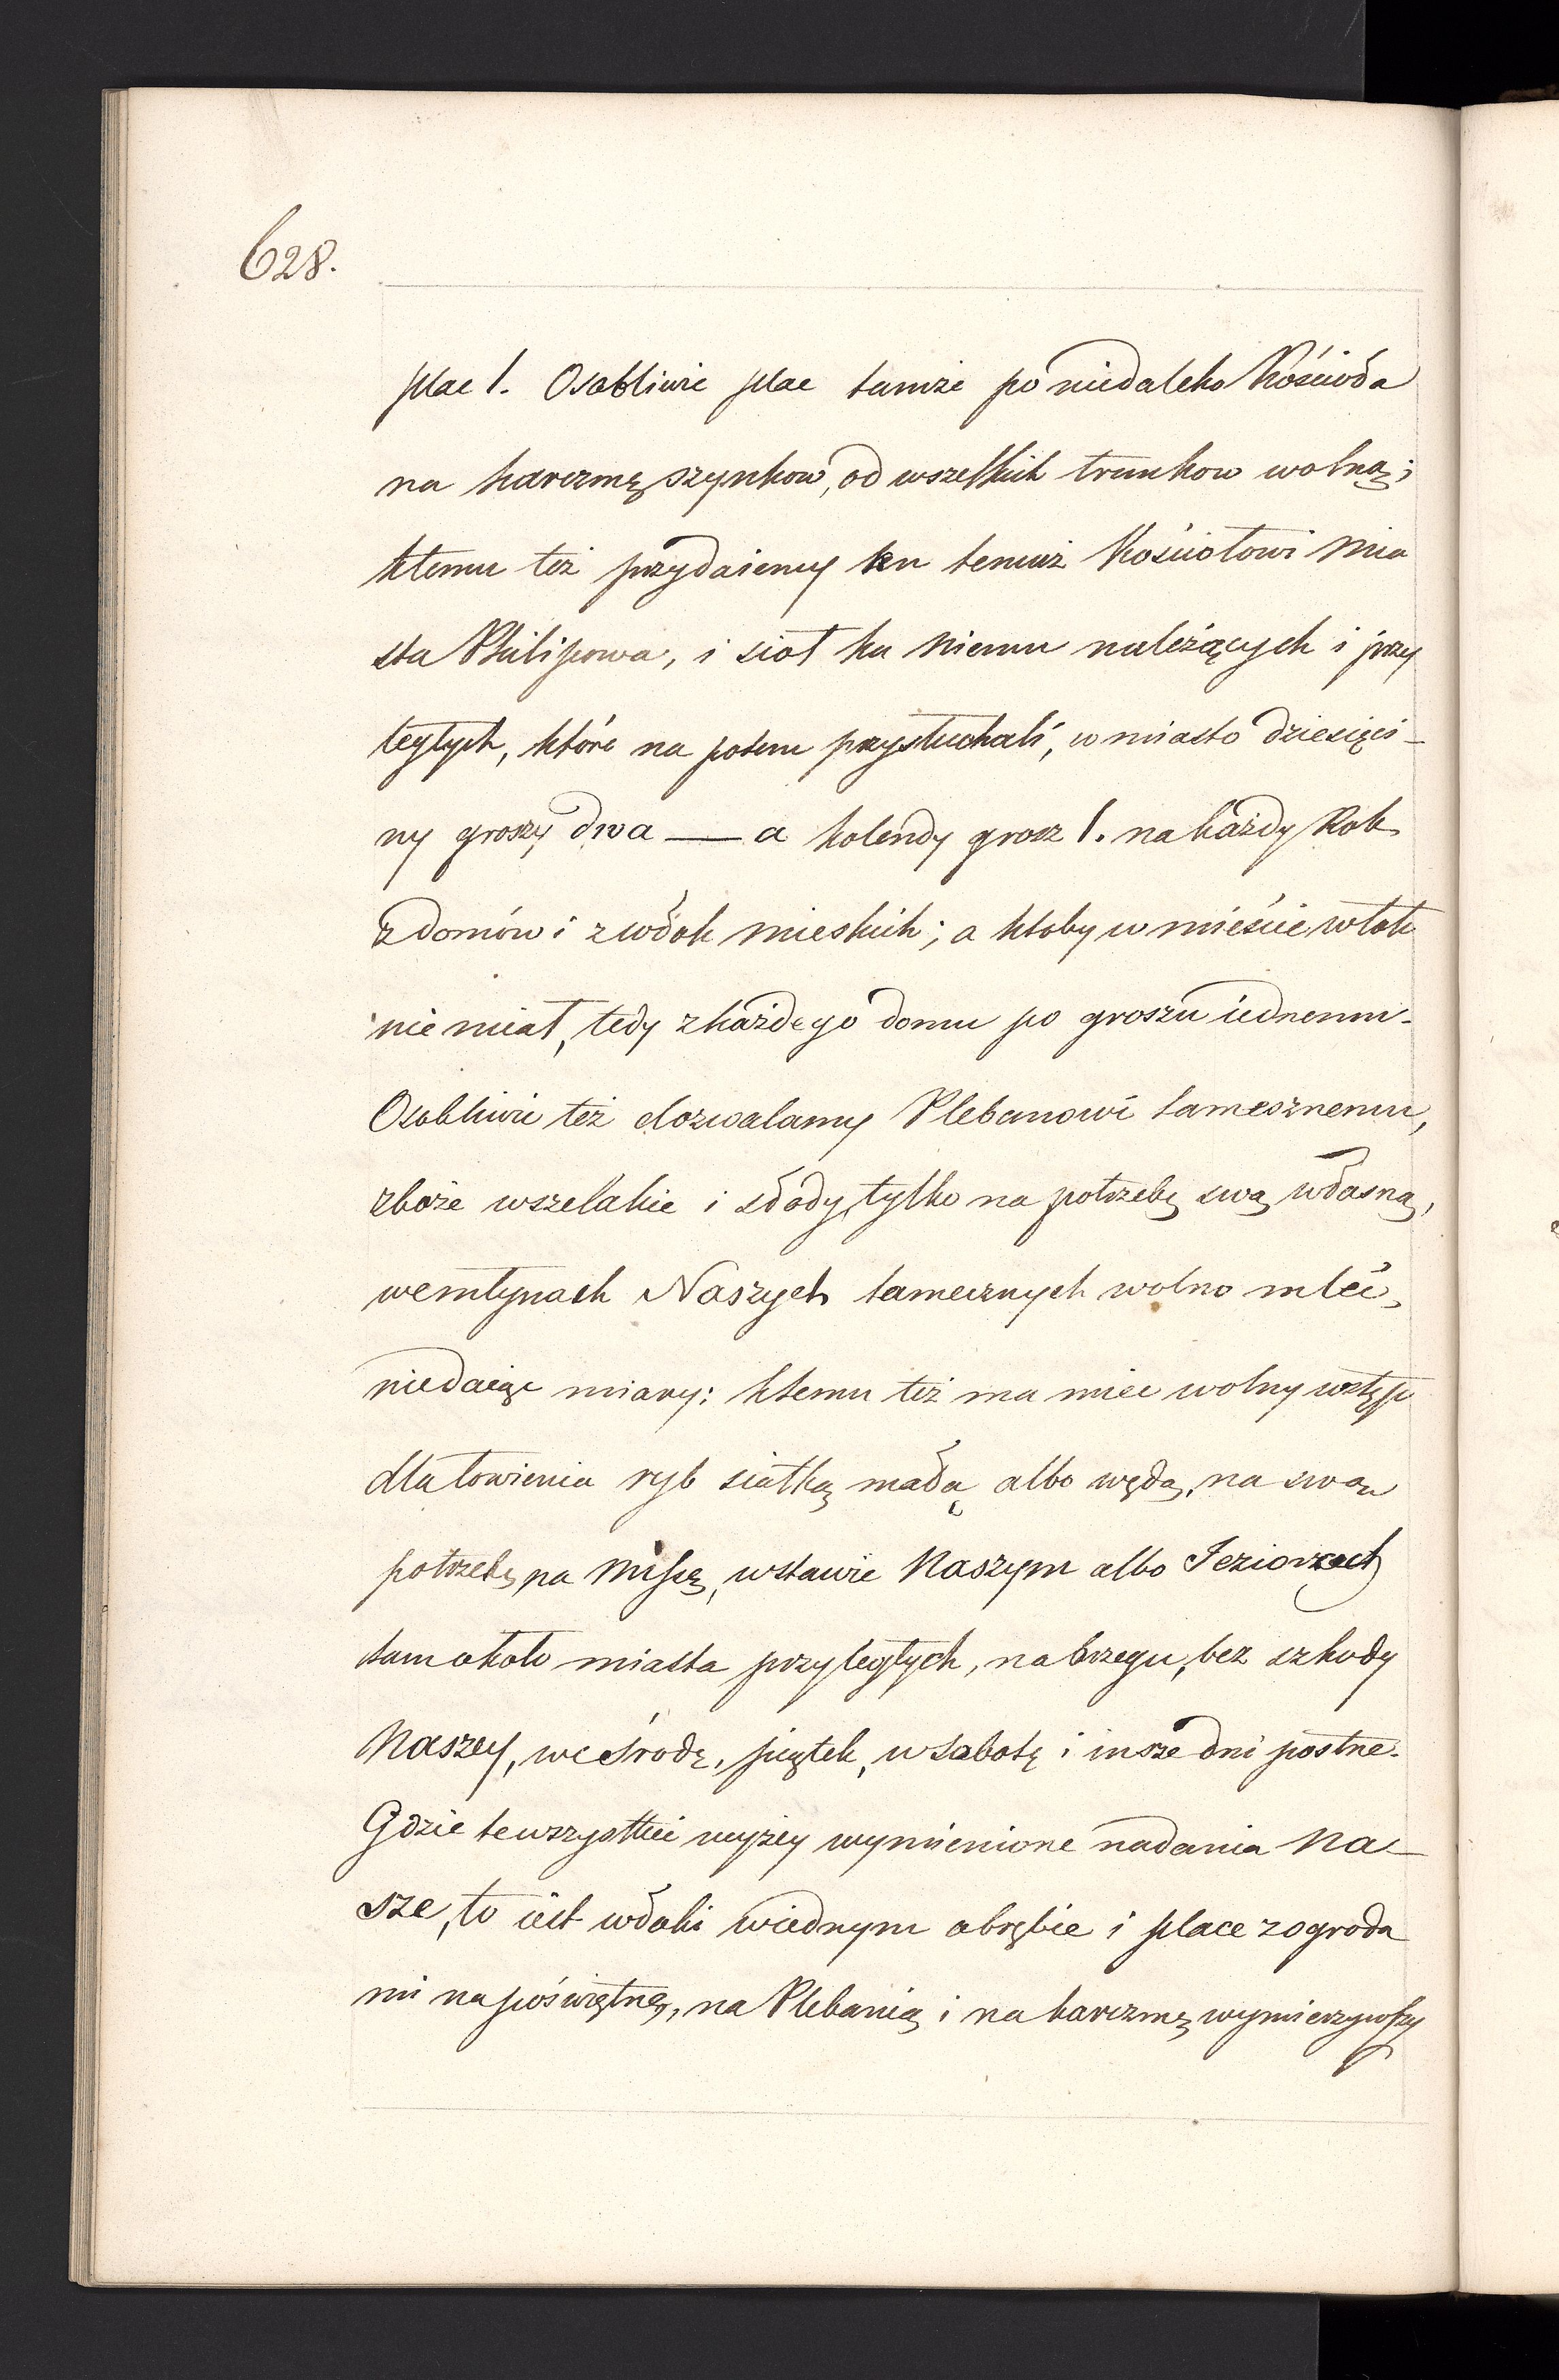 628.
plac 1. Osobliwie plac tamże po niedaleko Kościoła
na karczmę szynkow, od wszelkich trunkow wolną;
ktemu też przydaiemy ku temuż Kościołowi Mia
sta Philipowa, i sioł ku Niemu należących i przy
ległych, które na potem przysłuchali, w miasto dziesięci_
ny groszy dwa — a kolendy grosz 1. na każdy Rok
z domów i z włok mieskich; a ktoby w mieście włok
nie miał, tedy z każdego domu po groszu iednemu.
Osobliwie też dozwalamy Plebanowi tamesznemu,
zboże wszelakie i słody, tylko na potrzebę swą własną,
we młynach Naszych tamecznych wolno mleć,
niedaiąc miary: ktemu też ma miec wolny wstęp
dla łowienia ryb siatką małą albo wędą, na swą
potrzebę na Missę, w stawie Naszym albo Jeziorzech
tam około miasta przyległych, na brzegu, bez szkody
Naszey, we środę, piątek, w sobotę i insze dni postne.
Gdzie te wszystkie wyżey wymienione nadania Na_
sze, to iest włoki w iednym obrębie i place z ogroda
mi na poświętne, na Plebanią i na karczmę wymierzywszy